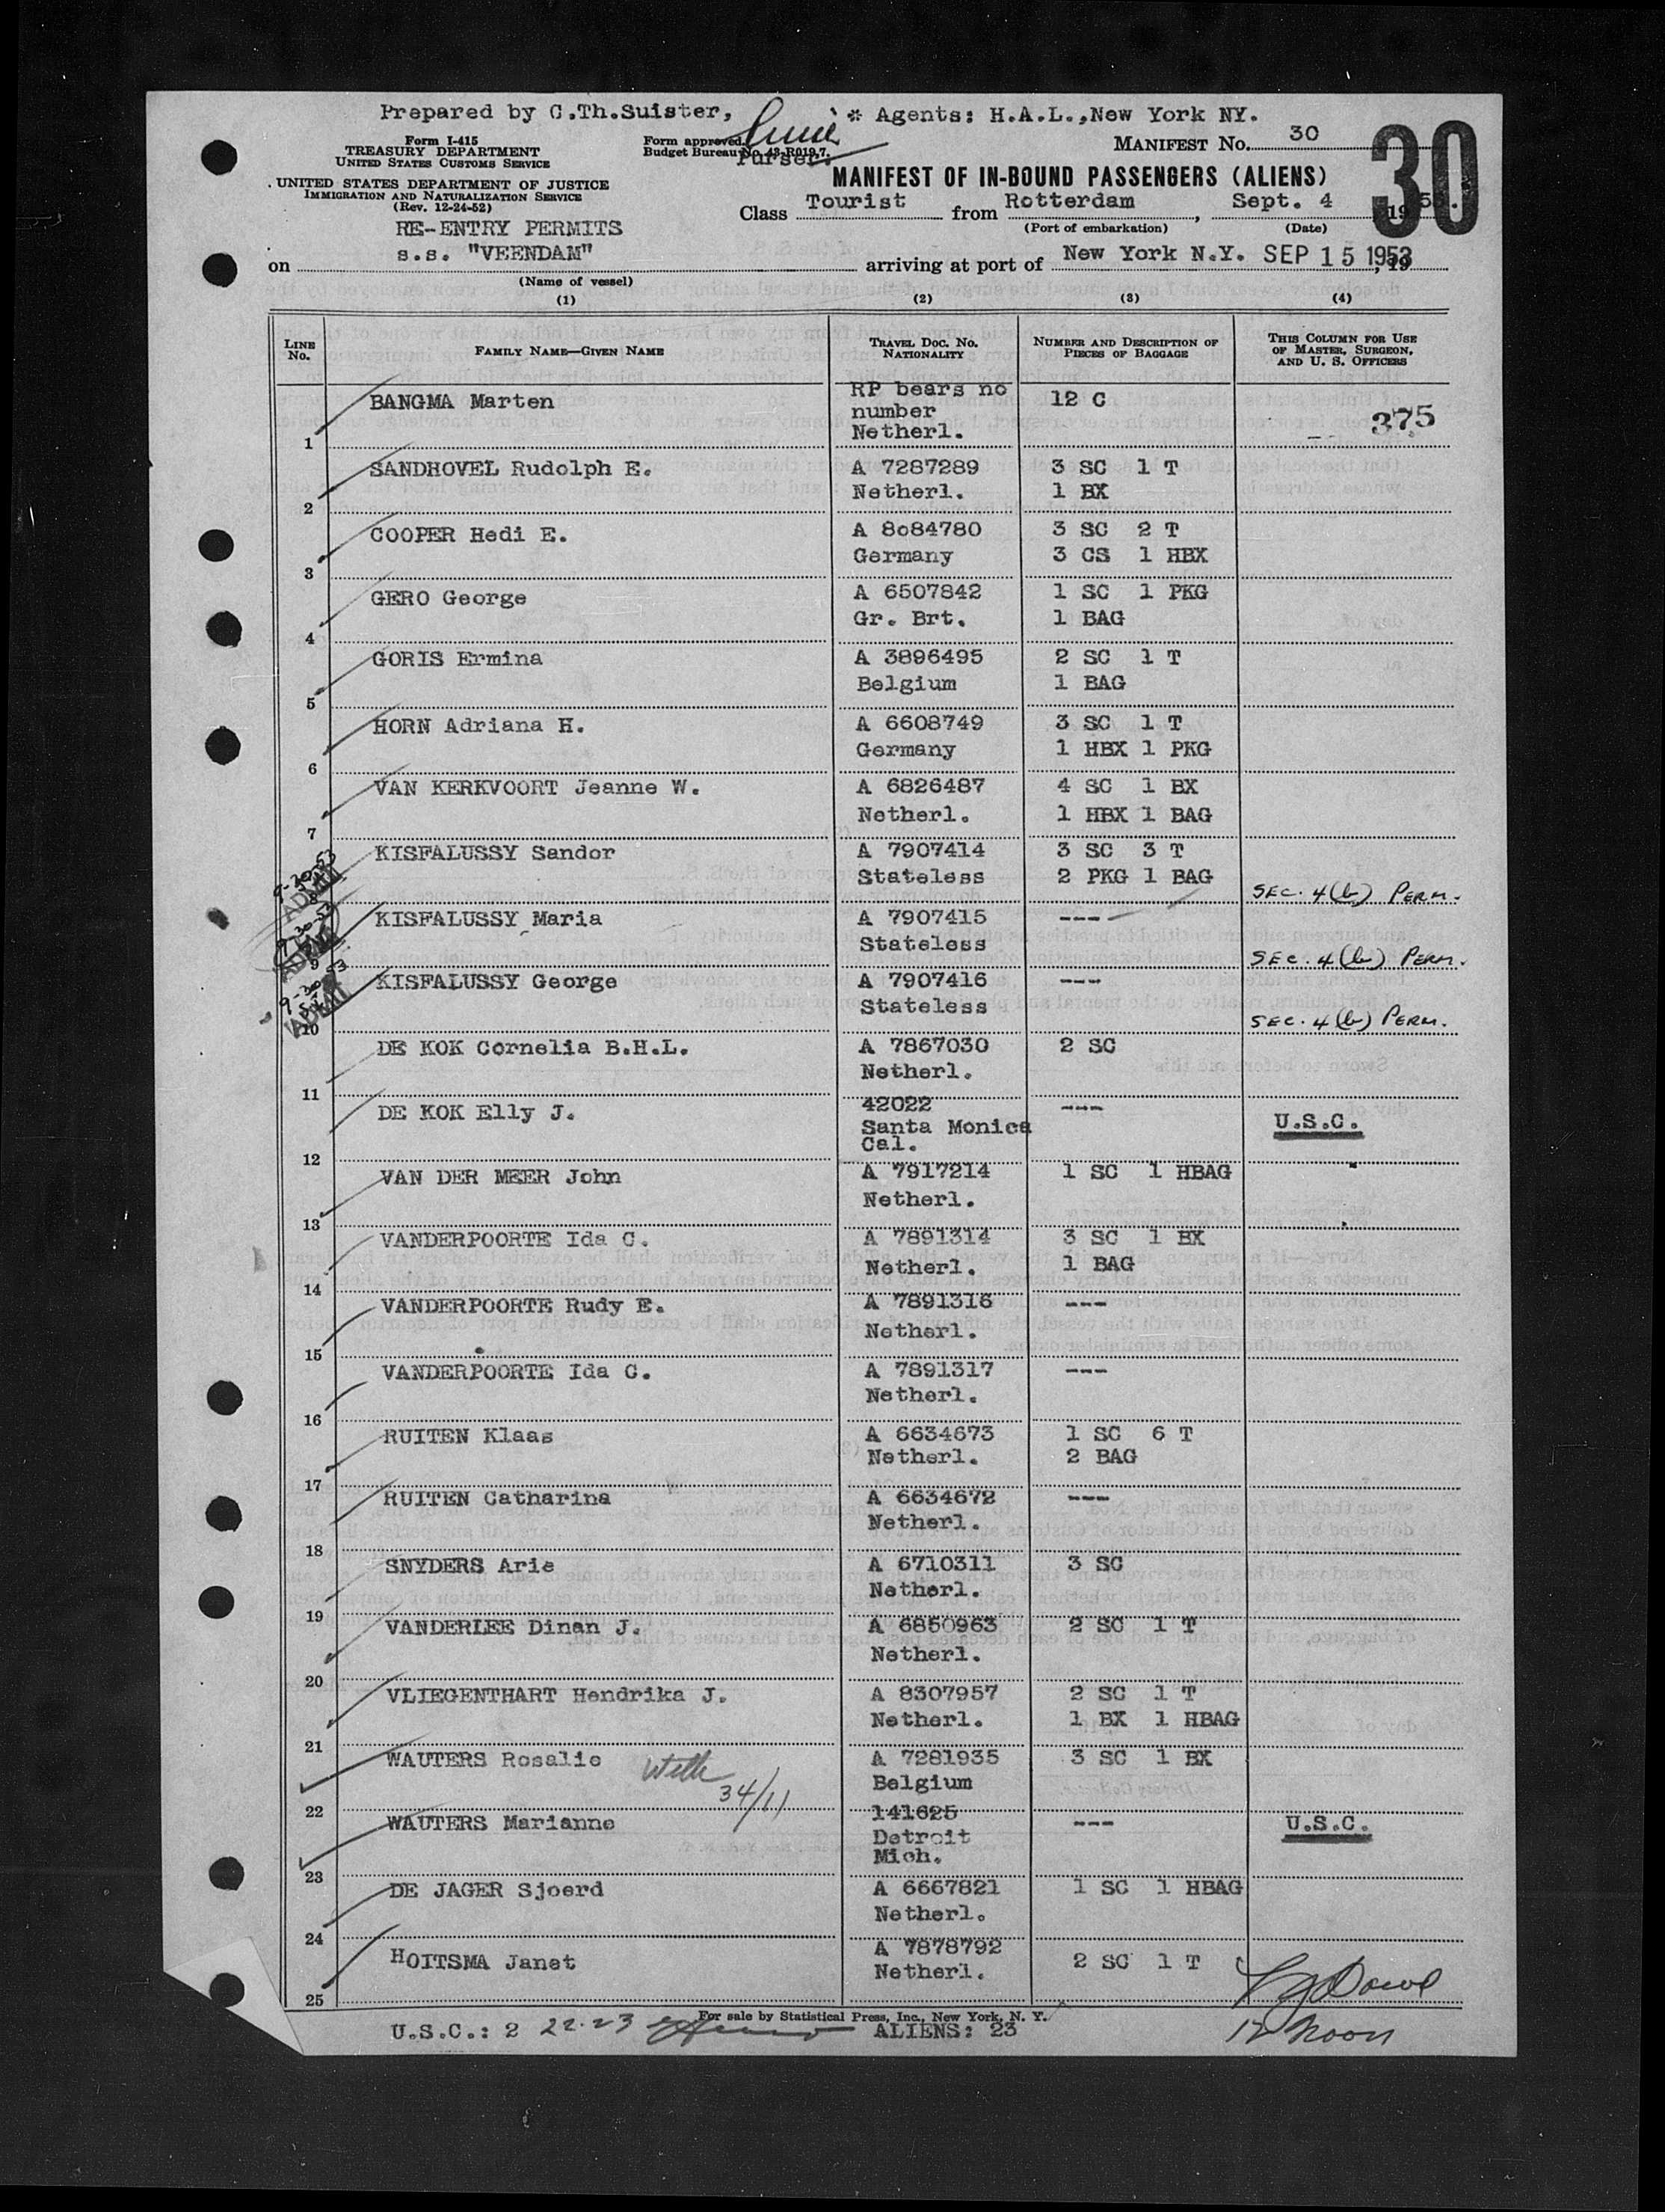 Prepared by C.Th.Suister, * Agents: H.A.L.,New York NY.
Form I-415
TREASURY DEPARTMENT
UNITED STATES CUSTOMS SERVICE
Form approved.
Budget Bureau No. 43-R019.7.
Purser.
MANIFEST No. 30
30
UNITED STATES DEPARTMENT OF JUSTICE
IMMIGRATION AND NATURALIZATION SERVICE
(Rev. 12-24-52)
MANIFEST OF IN-BOUND PASSENGERS (ALIENS)
Class Tourist from Rotterdam, Sept. 4 19
(Port of embarkation) (Date)
RE-ENTRY PERMITS
on s.s. "VEENDAM" arriving at port of New York N.Y. SEP 15 1953
(Name of vessel)
(1) (2) (3) (4)
LINE No. FAMILY NAME—GIVEN NAME TRAVEL DOC. No. NATIONALITY NUMBER AND DESCRIPTION OF PIECES OF BAGGAGE THIS COLUMN FOR USE OF MASTER, SURGEON, AND U. S. OFFICERS
1 BANGMA Marten RP bears no number Netherl. 12 C 375
2 SANDHOVEL Rudolph E. A 7287289 Netherl. 3 SC 1 T 1 BX
3 COOPER Hedi E. A 8084780 Germany 3 SC 2 T 3 CS 1 HBX
4 GERO George A 6507842 Gr. Brt. 1 SC 1 PKG 1 BAG
5 GORIS Ermina A 3896495 Belgium 2 SC 1 T 1 BAG
6 HORN Adriana H. A 6608749 Germany 3 SC 1 T 1 HBX 1 PKG
7 VAN KERKVOORT Jeanne W. A 6826487 Netherl. 4 SC 1 BX 1 HBX 1 BAG
8 KISFALUSSY Sandor A 7907414 Stateless 3 SC 3 T 2 PKG 1 BAG SEC. 4(b) PERM.
9-30-53 ADMIT
9 KISFALUSSY Maria A 7907415 Stateless --- SEC. 4(b) PERM.
9-30-53 ADMIT
10 KISFALUSSY George A 7907416 Stateless --- SEC. 4(b) PERM.
9-30-53 ADMIT
11 DE KOK Cornelia B.H.L. A 7867030 Netherl. 2 SC
12 DE KOK Elly J. 42022 Santa Monica Cal. --- U.S.C.
13 VAN DER MEER John A 7917214 Netherl. 1 SC 1 HBAG
14 VANDERPOORTE Ida C. A 7891314 Netherl. 3 SC 1 BX 1 BAG
15 VANDERPOORTE Rudy E. A 7891316 Netherl. ---
16 VANDERPOORTE Ida C. A 7891317 Netherl. ---
17 RUITEN Klaas A 6634673 Netherl. 1 SC 6 T 2 BAG
18 RUITEN Catharina A 6634672 Netherl. ---
19 SNYDERS Arie A 6710311 Netherl. 3 SC
20 VANDERLEE Dinan J. A 6850963 Netherl. 2 SC 1 T
21 VLIEGENTHART Hendrika J. A 8307957 Netherl. 2 SC 1 T 1 BX 1 HBAG
22 WAUTERS Rosalie With 34/11 A 7281935 Belgium 3 SC 1 BX
23 WAUTERS Marianne 141625 Detroit Mich. --- U.S.C.
24 DE JAGER Sjoerd A 6667821 Netherl. 1 SC 1 HBAG
25 HOITSMA Janet A 7878792 Netherl. 2 SC 1 T
For sale by Statistical Press, Inc., New York, N. Y.
U.S.C.: 2 22-23 ALIENS: 23 12 Noon